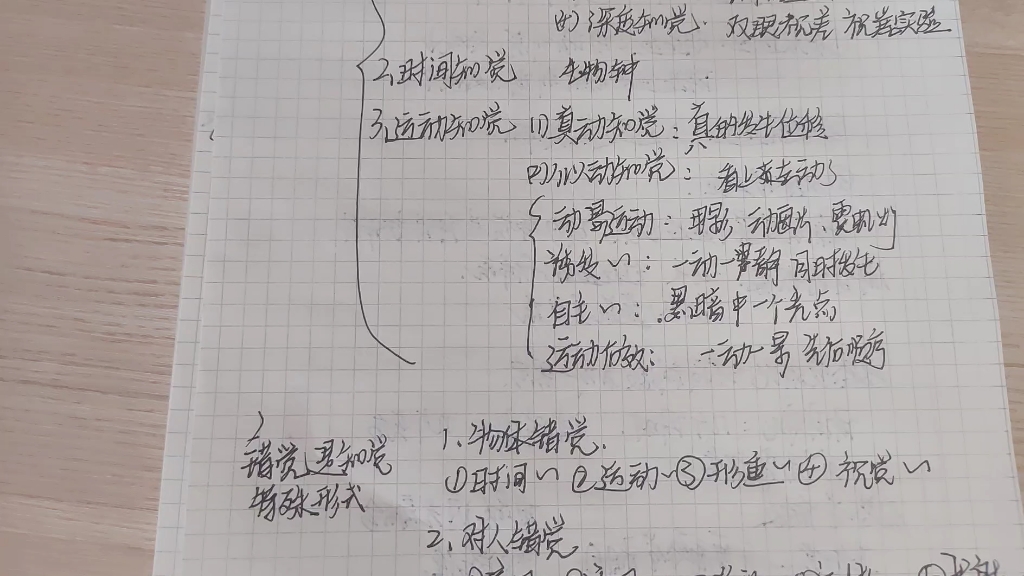 (4) 深度知觉. 双眼视差 视崖实验
2、时间知觉 生物钟
3、运动知觉 (1) 真动知觉：真的发生位移
(2) 似动知觉：看上去在动
动景运动：电影 动画片、霓虹灯
诱发〃：一动一静 同时发生
自主〃：黑暗中一个光点
运动后效：一动一景 先后
错觉是知觉 1、物体错觉.
特殊形式 ①时间〃 ②运动〃 ③形重〃 ④ 视觉〃
2、对人错觉